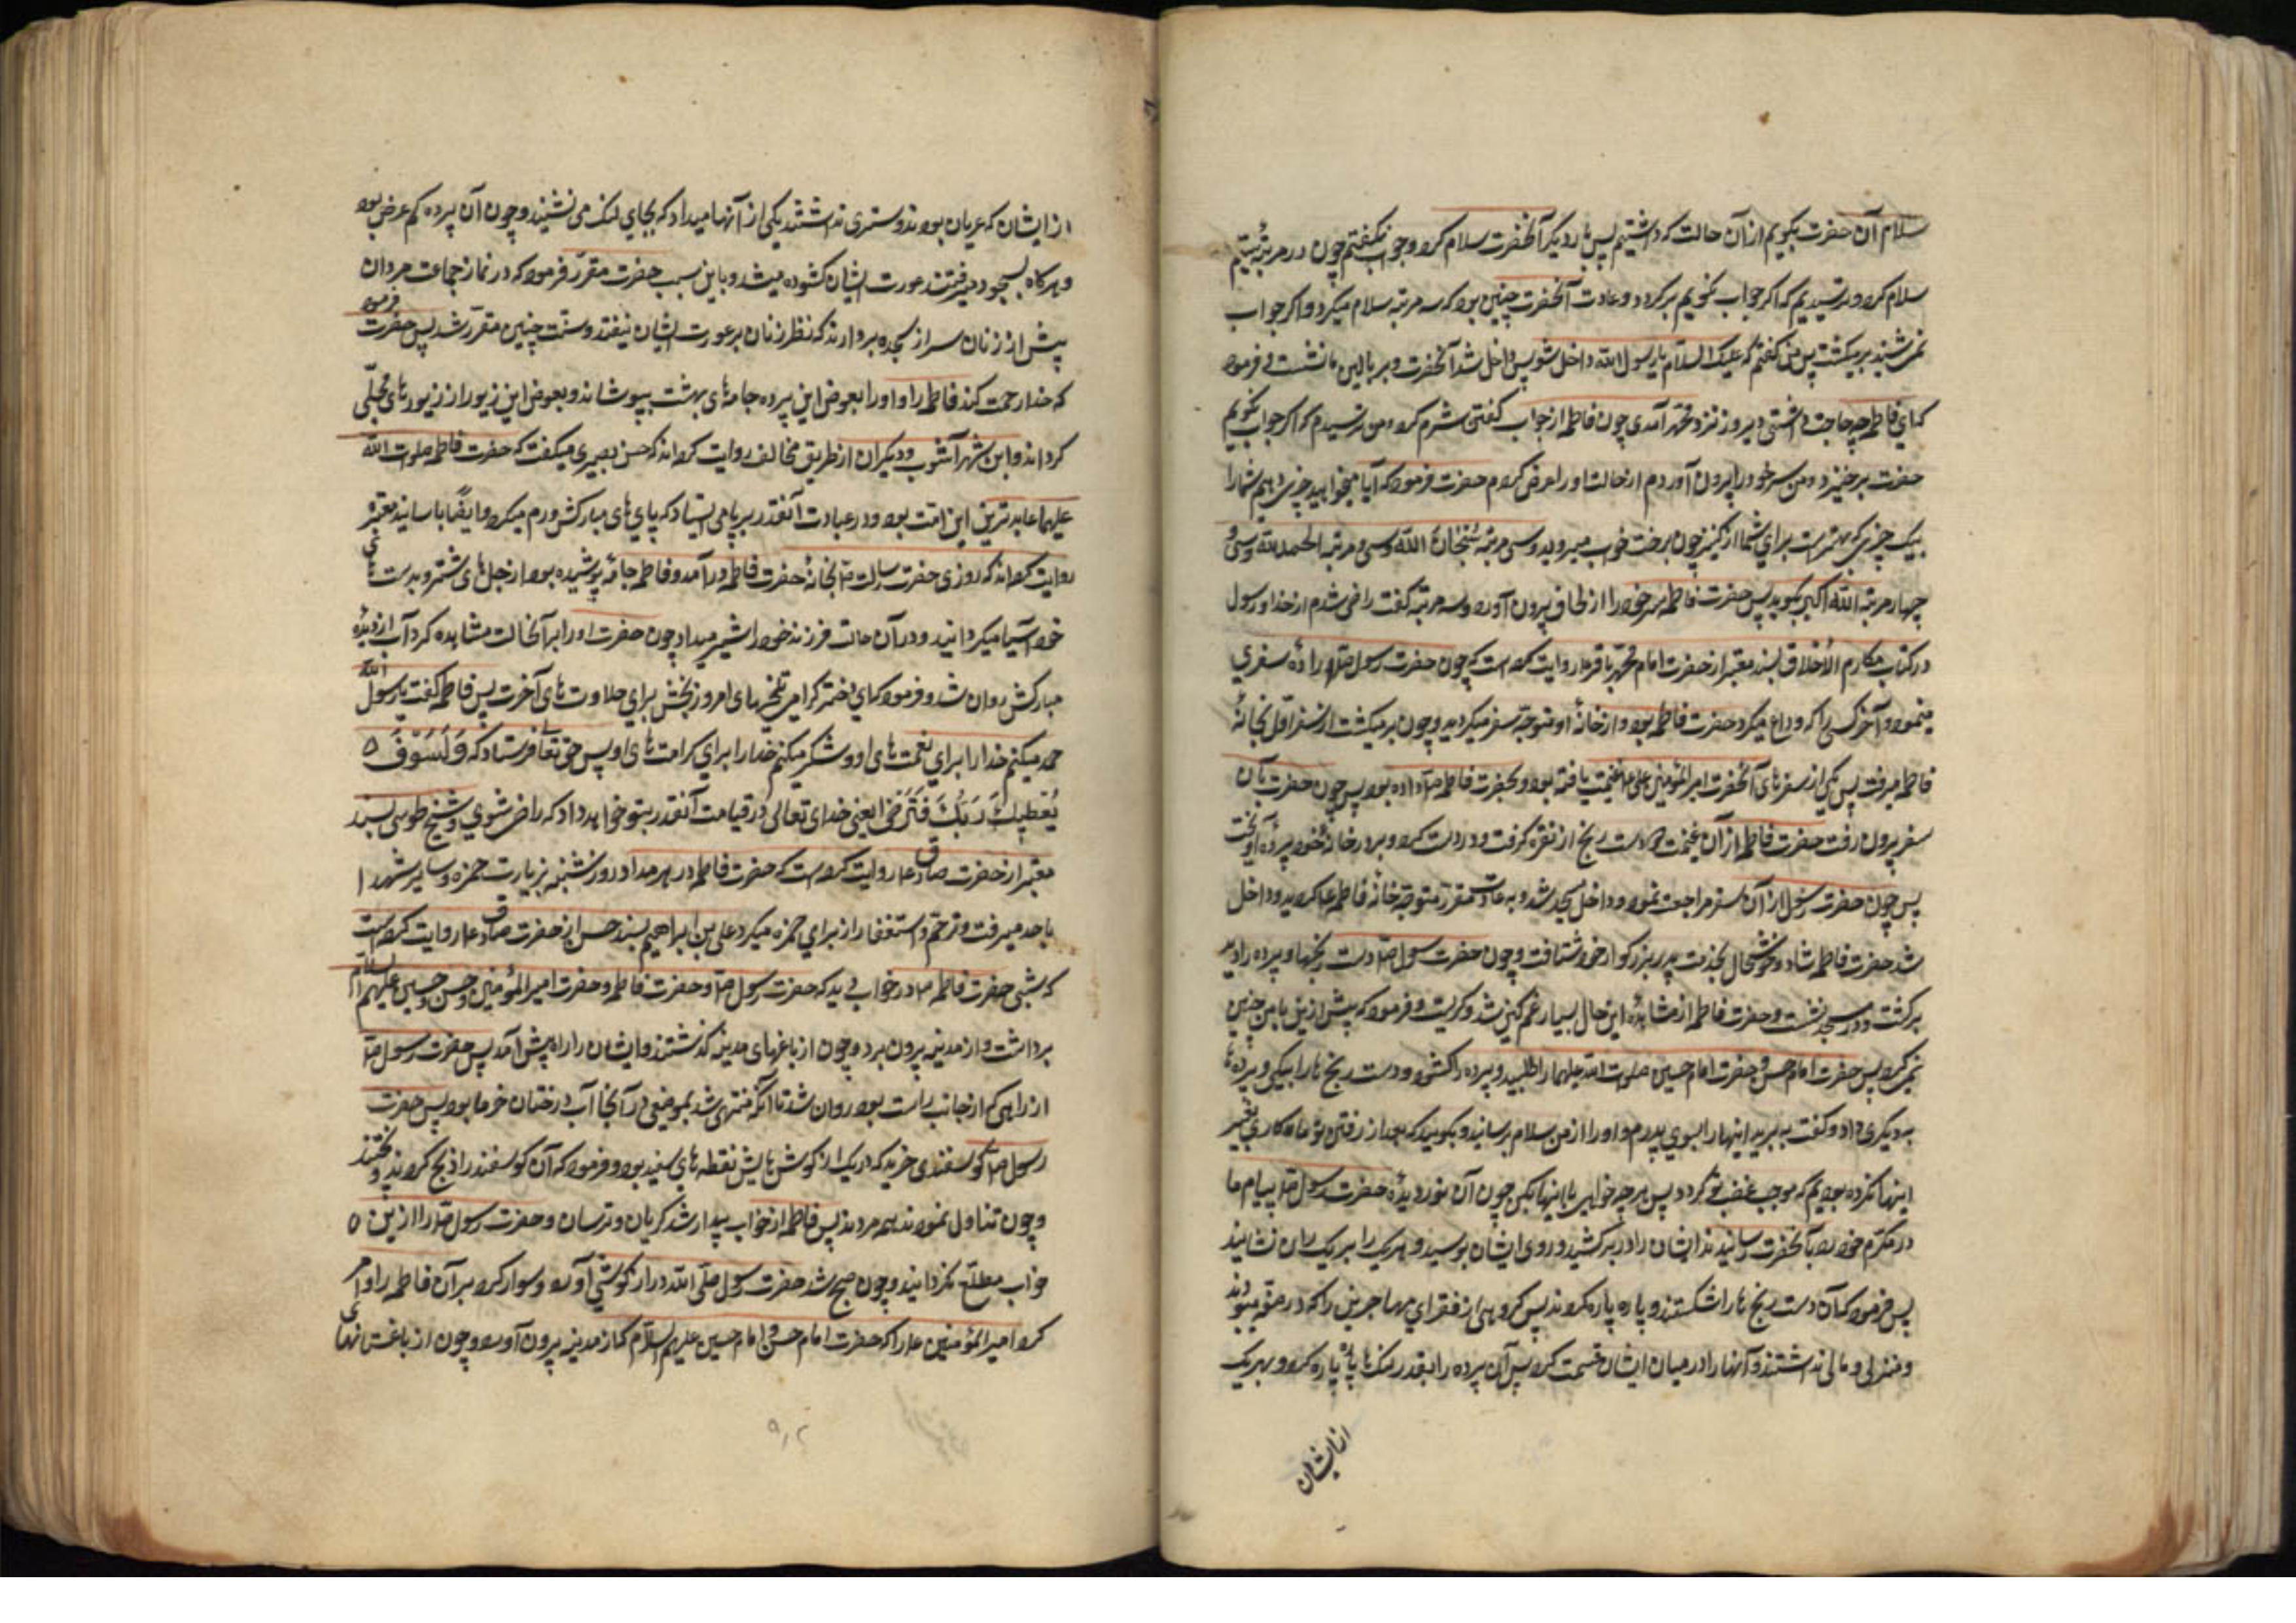 سلام آن حضرت بگویم از آن حالت که داشتیم پس بار دیگر آنحضرت سلام کرد و جواب نگفتم چون در مرتبهٔ سیم
سلام کرد و ترسیدیم که اگر جواب نگویم برگردد و عادت آنحضرت چنین بود که سه مرتبه سلام میکرد و اگر جواب
نمی شنید برمیگشت پس من گفتم که علیک السلام یا رسول الله داخل شو پس داخل شد آنحضرت و بر بالین ما نشست و فرمود
که ای فاطمه چه حاجت داشتی دیروز نزد محمد آمدی چون فاطمه از جواب گفتن شرم کرد و من ترسیدم که اگر جواب نگویم
حضرت برخیزد و من سر خود را بیرون آوردم از حالت او را عرض کردم حضرت فرمود که آیا میخواهید چیزی دهم شما را
بیک چیزی که بهتر است برای شما از کنیز چون برخت خواب میروید و سی مرتبه سُبْحَانَ الله و سی و مرتبه الحمد لله و سی و
چهار مرتبه الله اکبر بگوید پس حضرت فاطمه سر خود را از لحاف بیرون آورد و سه مرتبه گفت راضی شدم از خدا و رسول
در کتاب مکارم الاخلاق بسند معتبر از حضرت امام محمد باقر ع روایت کرده است که چون حضرت رسول ص ارادهٔ سفری
مینمود و آخر کسی را که وداع میکرد حضرت فاطمه بود و از خانهٔ او متوجه سفر میگردید و چون برمیگشت از سفر اول بخانهٔ
فاطمه میرفت پس یکی از سفرهای آنحضرت امیر المؤمنین علی ع غنیمت یافته بود و بحضرت فاطمه داده بود پس چون حضرت بآن
سفر بیرون رفت حضرت فاطمه از آن غنیمت دو دست رنج از نقره گرفت و در دست کرد و بر در خانهٔ خود پرده آویخت
پس چون حضرت رسول از آن سفر مراجعت نمود و داخل مسجد شد و به عادت مقرر متوجه خانه فاطمه ع گردید و داخل
شد حضرت فاطمه شاد و خوشحال بخدمت پدر بزرگوار خود شتافت و چون حضرت رسول ص دست رنجها و پرده را دید
برگشت و در مسجد نشست و حضرت فاطمه از مشاهده این حال بسیار غمگین شد و گریست و فرمود که پیش ازین با من چنین
نمی کرد پس حضرت امام حسن و حضرت امام حسین صلوات الله علیهما را طلبید و پرده را گشود و دست رنج ها را بیکی و پرده را
به دیگری داد و گفت ببرید اینها را بسوی پدرم و او را از من سلام برسانید و بگوئید که بعد از رفتن تو ما کاری بغیر
اینها نکرده بودیم که موجب غضب تو گردد پس هر چه خواهی با اینها بکن چون آن نور دیدهٔ حضرت رسول ص پیام ما
در مکرم خود را بآنحضرت رسانیدند ایشان را در بر کشید و روی ایشان بوسید و هر یک را بر یک ران نشانید
پس فرمود که آن دست رنج ها را شکستند و پاره پاره کردند پس گروهی از فقرای مهاجرین را که در صفه میبودند
و منزلی و مالی نداشتند و آنها را در میان ایشان قسمت کرد پس آن پرده را بقدر لنگ ها پاره پاره کرد و بهر یک
از ایشان
از ایشان که عریان بودند و ستری نداشتند یکی از آنها میداد که بجای لنک می نشیند و چون آن پرده کم عرض بود
و هر گاه بسجود میرفتند عورت ایشان گشوده میشد و باین سبب حضرت مقرر فرمود که در نماز جماعت مردان
پیش از زنان سر از سجده بردارند که نظر زنان بر عورت ایشان نیفتد و سنت چنین مقرر شد پس حضرت فرمود
که خدا رحمت کند فاطمه را و او را بعوض این پرده جامهای بهشت بپوشاند و بعوض این زیور از زیورهای محلّی
گرداند و ابن شهر آشوب و دیگران از طریق مخالف روایت کرده اند که حسن بصری میگفت که حضرت فاطمه صلوات الله
علیهما عابدترین این امت بود و در عبادت آنقدر بر پا می ایستاد که پای های مبارکش ورم میکرد و ایضاً با سانید معتبره
روایت کرده اند که روزی حضرت رسالت ص بخانهٔ حضرت فاطمه در آمد و فاطمه جامه پوشیده بود از جل های شتر و بدست های
خود آسیا میگردانید و در آن حالت فرزند خود را شیر میداد چون حضرت او را بر آنحالت مشاهده کرد آب از دیدهٔ
مبارکش روان شد و فرمود که ای دختر گرامی تلخیهای امروز بچش برای حلاوت های آخرت پس فاطمه گفت یا رسول الله
حمد میکنم خدا را برای نعمت های او و شکر میکنم خدا را برای کرامت های او پس حق تعالی فرستاد که وَلَسَوْفَ
یُعْطِیكَ رَبُّكَ فَتَرْضَی یعنی خدای تعالی در قیامت آنقدر بتو خواهد داد که راضی شوی و شیخ طوسی بسند
معتبر از حضرت صادق ع روایت کرده است که حضرت فاطمه در هر مداد روز شنبه بزیارت حمزه و سایر شهدا
باحد میرفت و ترحم و استغفار از برای حمزه میکرد علی بن ابراهیم بسند حسن از حضرت صادق ع روایت کرده است
که شبی حضرت فاطمه در خواب دید که حضرت رسول ص و حضرت فاطمه و حضرت امیر المؤمنین و حسن و حسین علیهم السلام
برداشت و از مدینه بیرون برد و چون از باغهای مدینه گذشتند و ایشان را راه پیش آمد پس حضرت رسول ص
از راهی که از جانب راست بود روان شد تا آنکه منتهی شد بموضعی در آنجا آب و درختان خرما بود پس حضرت
رسول ص گوسفندی خرید که در یک از گوش هایش نقطه های سفید بود و فرمود که آن گوسفند را ذبح کردند و پختند
و چون تناول نمودند همه مردند پس فاطمه از خواب بیدار شد گریان و ترسان و حضرت رسول ص را ازین
خواب مطلع نگردانید و چون صبح شد حضرت رسول صلی الله دراز گوشی آورد و سوار کرد بر آن فاطمه را و امر
کرد امیر المؤمنین ع را که حضرت امام حسن و امام حسین علیهم السلام که از مدینه بیرون آورد و چون از باغستانهای